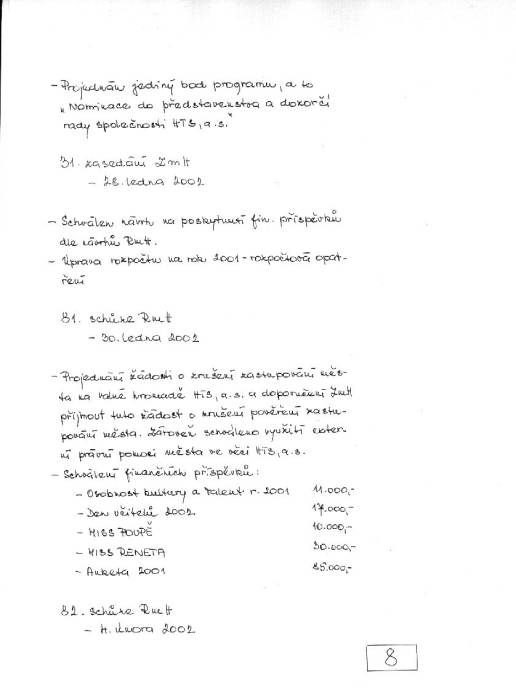 - Projednán jediný bod programu, a to
„Nominace do představenstva a dozorčí
rady společnosti HTS, a.s."
31. zasedání ZmH
- 28. ledna 2002
- Schválen návrh na poskytnutí fin. příspěvků
dle návrhů RmH.
- Úprava rozpočtu na rok 2001 - rozpočtová opat-
ření
81. schůze RmH
- 30. ledna 2002
- Projednání žádosti o zrušení zastupování měs-
ta na valné hromadě HTS, a.s. a doporučení ZmH
přijmout tuto žádost o zrušení pověření zastu-
pování města. Zároveň schváleno využití exter-
ní právní pomoci města ve věci HTS, a.s.
- Schválení finančních příspěvků:
- Osobnost kultury a talent r. 2001 11.000,-
- Den učitelů 2002 17.000,-
- MISS POUPĚ 10.000,-
- MISS RENETA 30.000,-
- Anketa 2001 85.000,-
82. schůze RmH
- 4. února 2002
8